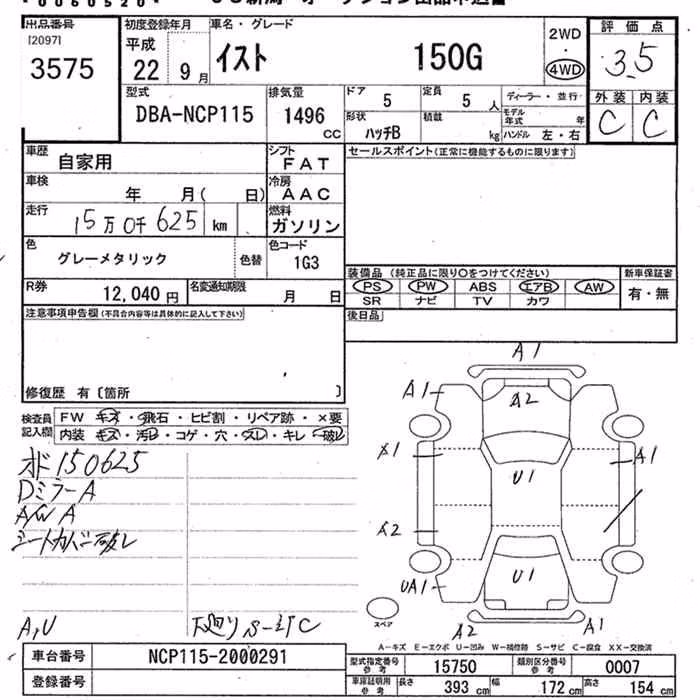 出品番号
[2097]
3575
初度登録年月
平成
22年 9月
車名・グレード
イスト 150G
2WD
・
4WD
評価点
3.5
外装 内装
C C
型式
DBA-NCP115
排気量
1496
CC
ドア
5
定員
5 人
ディーラー・並行
形状
ハッチB
積載
kg
モデル年式 年
ハンドル 左・右
車歴
自家用
シフト
FAT
セールスポイント(正常に機能するものに限ります)
車検
年 月( 日)
冷房
AAC
走行
15万0千625 km
燃料
ガソリン
色
グレーメタリック
色替
色コード
1G3
装備品 (純正品に限り○をつけてください)
新車保証書
PS PW ABS エアB AW
有・無
SR ナビ TV カワ
R券
12,040 円
名変通知期限
月 日
注意事項申告欄(不具合内容等は具体的に記入して下さい)
後日品
修復歴 有〔箇所 〕
検査員記入欄
FW キズ・飛石・ヒビ割・リペア跡・×要
内装 キズ・汚レ・コゲ・穴・スレ・キレ・破レ
オド150625
DミラーA
A/W A
シートカバー破レ
A,U
下廻りS-訂C
A1
A1
A2
A1
U1
A1
A2
UA1
U1
A2
A1
スペア
A-キズ E-エクボ U-凹み W-補修跡 S-サビ C-腐食 XX-交換済
車台番号
NCP115-2000291
登録番号
型式指定番号
参考
15750
類別区分番号
参考
0007
車庫証明用
参考
長さ
393 cm
幅
172 cm
高さ
154 cm